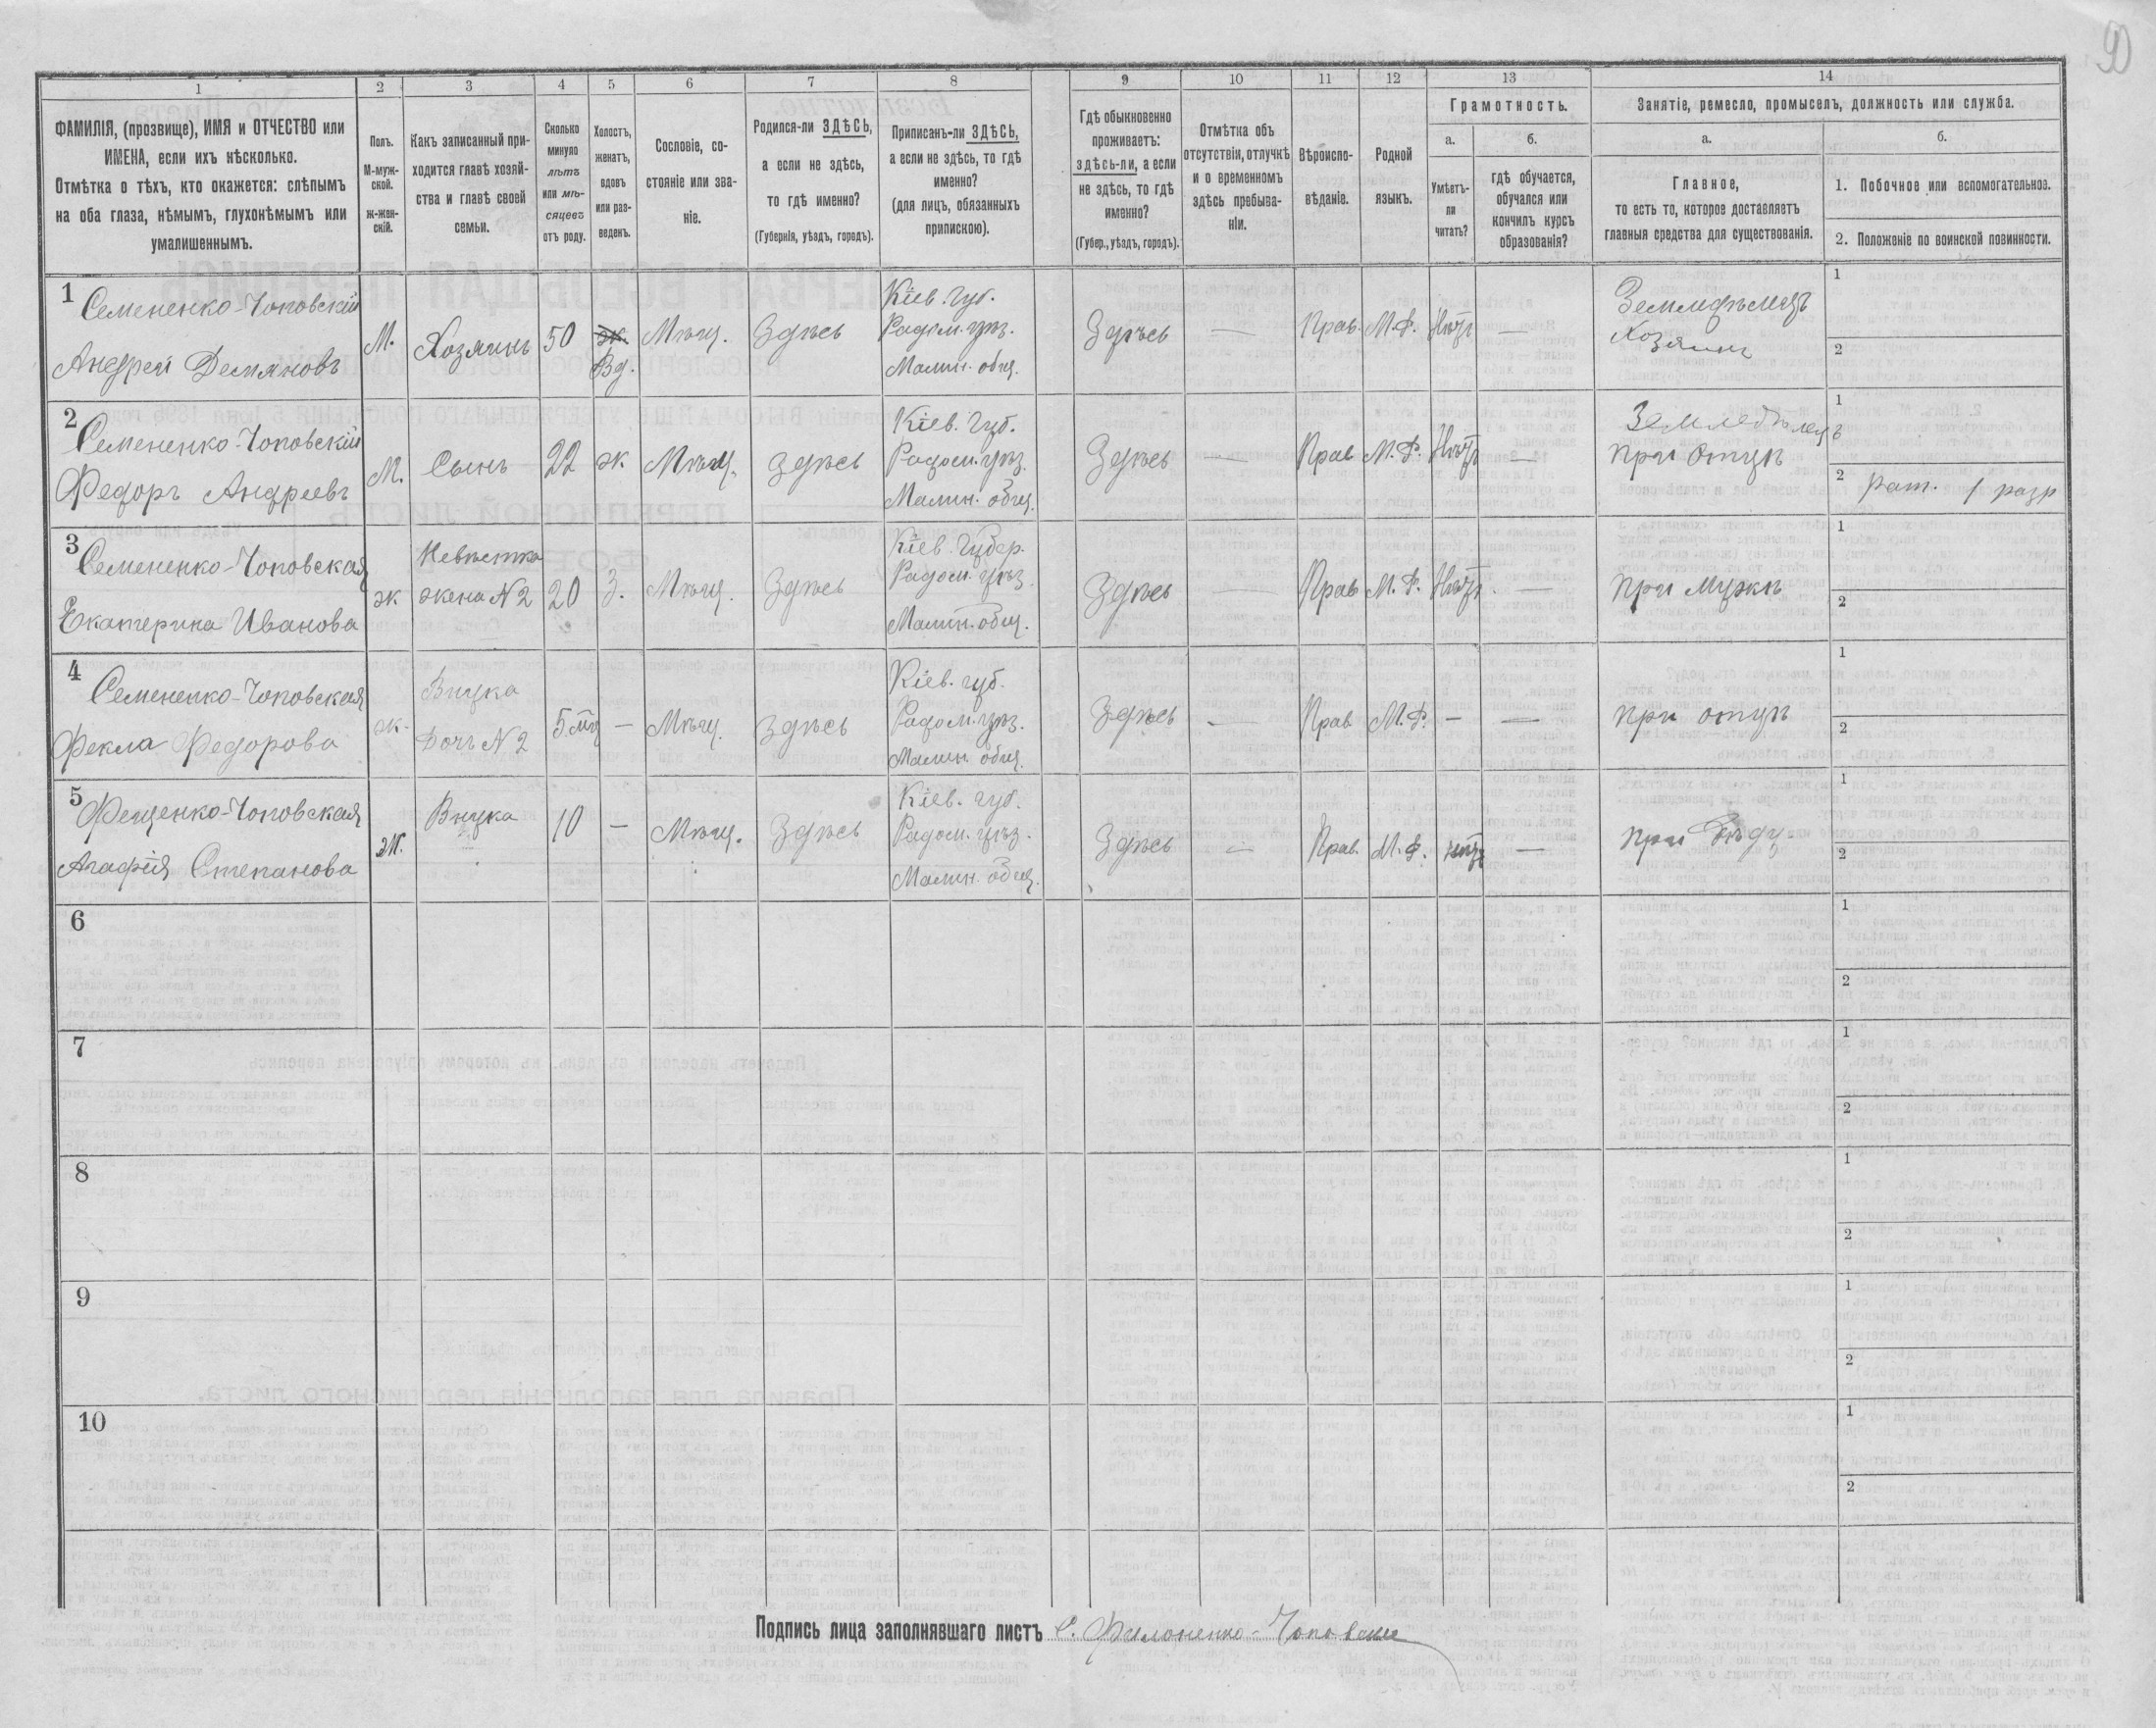 90
1 2 3 4 5 6 7 8 9 10 11 12 13 14
ФАМИЛІЯ, (прозвище), ИМЯ и ОТЧЕСТВО или
ИМЕНА, если ихъ нѣсколько.
Отмѣтка о тѣхъ, кто окажется: слѣпымъ
на оба глаза, нѣмымъ, глухонѣмымъ или
умалишеннымъ.
Полъ.
М-муж-
ской.
ж-жен-
скій.
Какъ записанный при-
ходится главѣ хозяй-
ства и главѣ своей
семьи.
Сколько
минуло
лѣтъ
или мѣ-
сяцевъ
отъ роду.
Холостъ,
женатъ,
вдовъ
или раз-
веденъ.
Сословіе, со-
стояніе или зва-
ніе.
Родился-ли ЗДѢСЬ,
а если не здѣсь,
то гдѣ именно?
(Губернія, уѣздъ, городъ).
Приписанъ-ли ЗДѢСЬ,
а если не здѣсь, то гдѣ
именно?
(для лицъ, обязанныхъ
припискою).
Гдѣ обыкновенно
проживаетъ:
здѣсь-ли, а если
не здѣсь, то гдѣ
именно?
(Губер., уѣздъ, городъ).
Отмѣтка объ
отсутствіи, отлучкѣ
и о временномъ
здѣсь пребыва-
ніи.
Вѣроиспо-
вѣданіе.
Родной
языкъ.
Грамотность.
а.
Умѣетъ-
ли
читать?
б.
гдѣ обучается,
обучался или
кончилъ курсъ
образованія?
Занятіе, ремесло, промыселъ, должность или служба.
а.
Главное,
то есть то, которое доставляетъ
главныя средства для существованія.
б.
1. Побочное или вспомогательное.
2. Положеніе по воинской повинности.
1
Семененко-Чоповскій
Андрей Демяновъ
М.
Хозяинъ
50
ж.
Вд.
Мѣщ.
Здѣсь
Кіев. Губ.
Радом. уѣз.
Малин. общ.
Здѣсь
—
Прав.
М.Р.
Нѣтъ
—
Земледѣлецъ
Хозяинъ
1
2
2
Семененко-Чоповскій
Федоръ Андреевъ
М.
Сынъ
22
ж.
Мѣщ.
Здѣсь
Кіев. Губ.
Радом. уѣз.
Малин. общ.
Здѣсь
—
Прав
М.Р.
Нѣтъ
—
Земледѣлецъ
при Отцѣ
1
2
рат. 1 разр
3
Семененко-Чоповская
Екатерина Иванова
ж
Невѣстка
жена N 2
20
З.
Мѣщ.
Здѣсь
Кіев. Губер.
Радом. уѣз.
Малин. общ.
Здѣсь
—
Прав
М.Р.
Нѣтъ.
—
при Мужѣ
1
2
4
Семененко-Чоповская
Фекла Федорова
ж.
Внука
Дочь N 2
5 мц
—
Мѣщ.
Здѣсь
Кіев. губ.
Радом. уѣз.
Малин. общ.
Здѣсь
—
Прав
М.Р.
—
—
при отцѣ
1
2
5
Фещенко-Чоповская
Агафія Степанова
Ж.
Внука
10
—
Мѣщ.
Здѣсь
Кіев. Губ.
Радом. уѣз.
Малин. общ.
Здѣсь
—
Прав.
М.Р.
нѣтъ
—
при Дѣду
1
2
6
1
2
7
1
2
8
1
2
9
1
2
10
1
2
Подпись лица заполнявшаго листъ С. Филоненко-Чоповскій